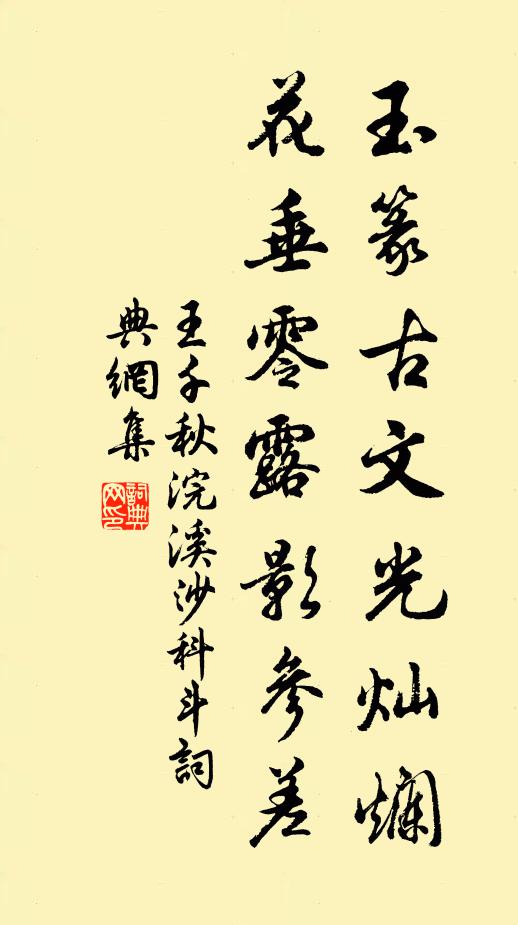 玉篆古文光灿爛
花垂零露影參差
王千秋浣溪沙科斗詞
典網集
詞典网印